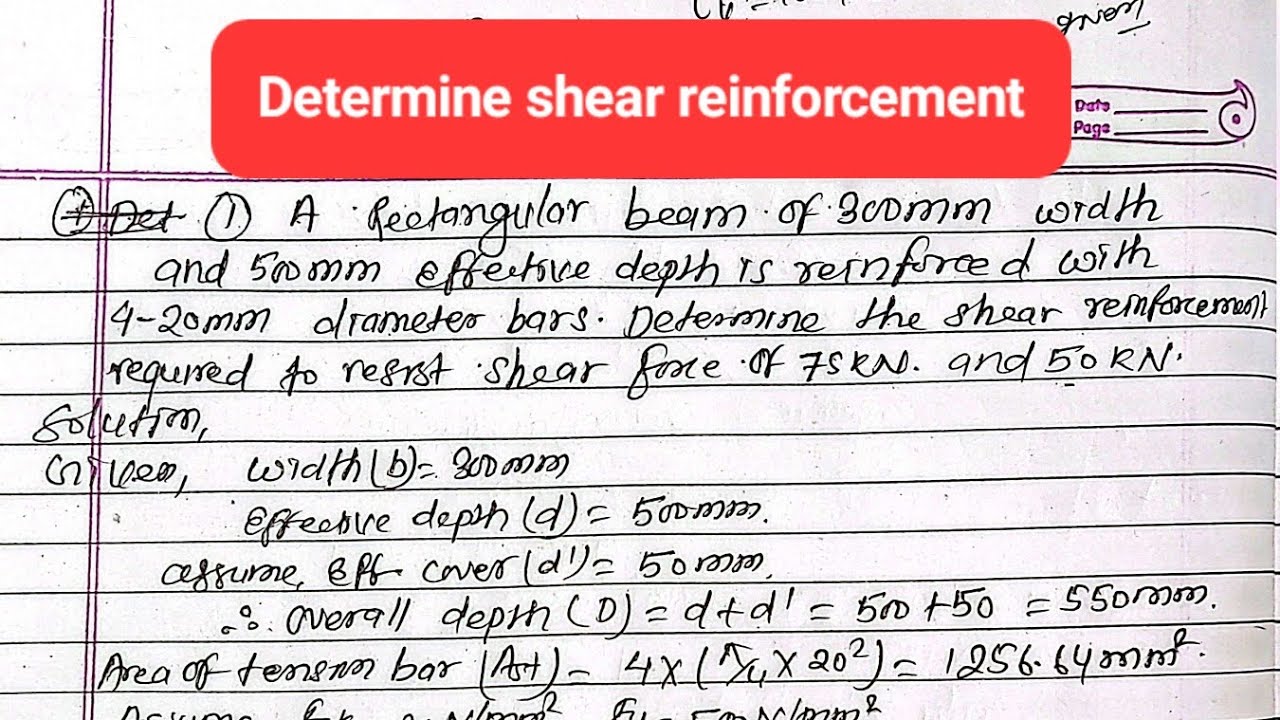 Determine shear reinforcement
Date
Page
① A Rectangular beam of 300mm width
and 500mm effective depth is reinforced with
4-20mm diameter bars. Determine the shear reinforcement
required to resist shear force of 75KN. and 50KN.
Solution,
Given, width(b)= 300mm
Effective depth(d)= 500mm.
assume, eff. cover(d')= 50mm.
∴ overall depth(D) = d+d' = 500+50 = 550mm.
Area of tension bar (Ast)= 4×(π/4×20²)= 1256.64mm².